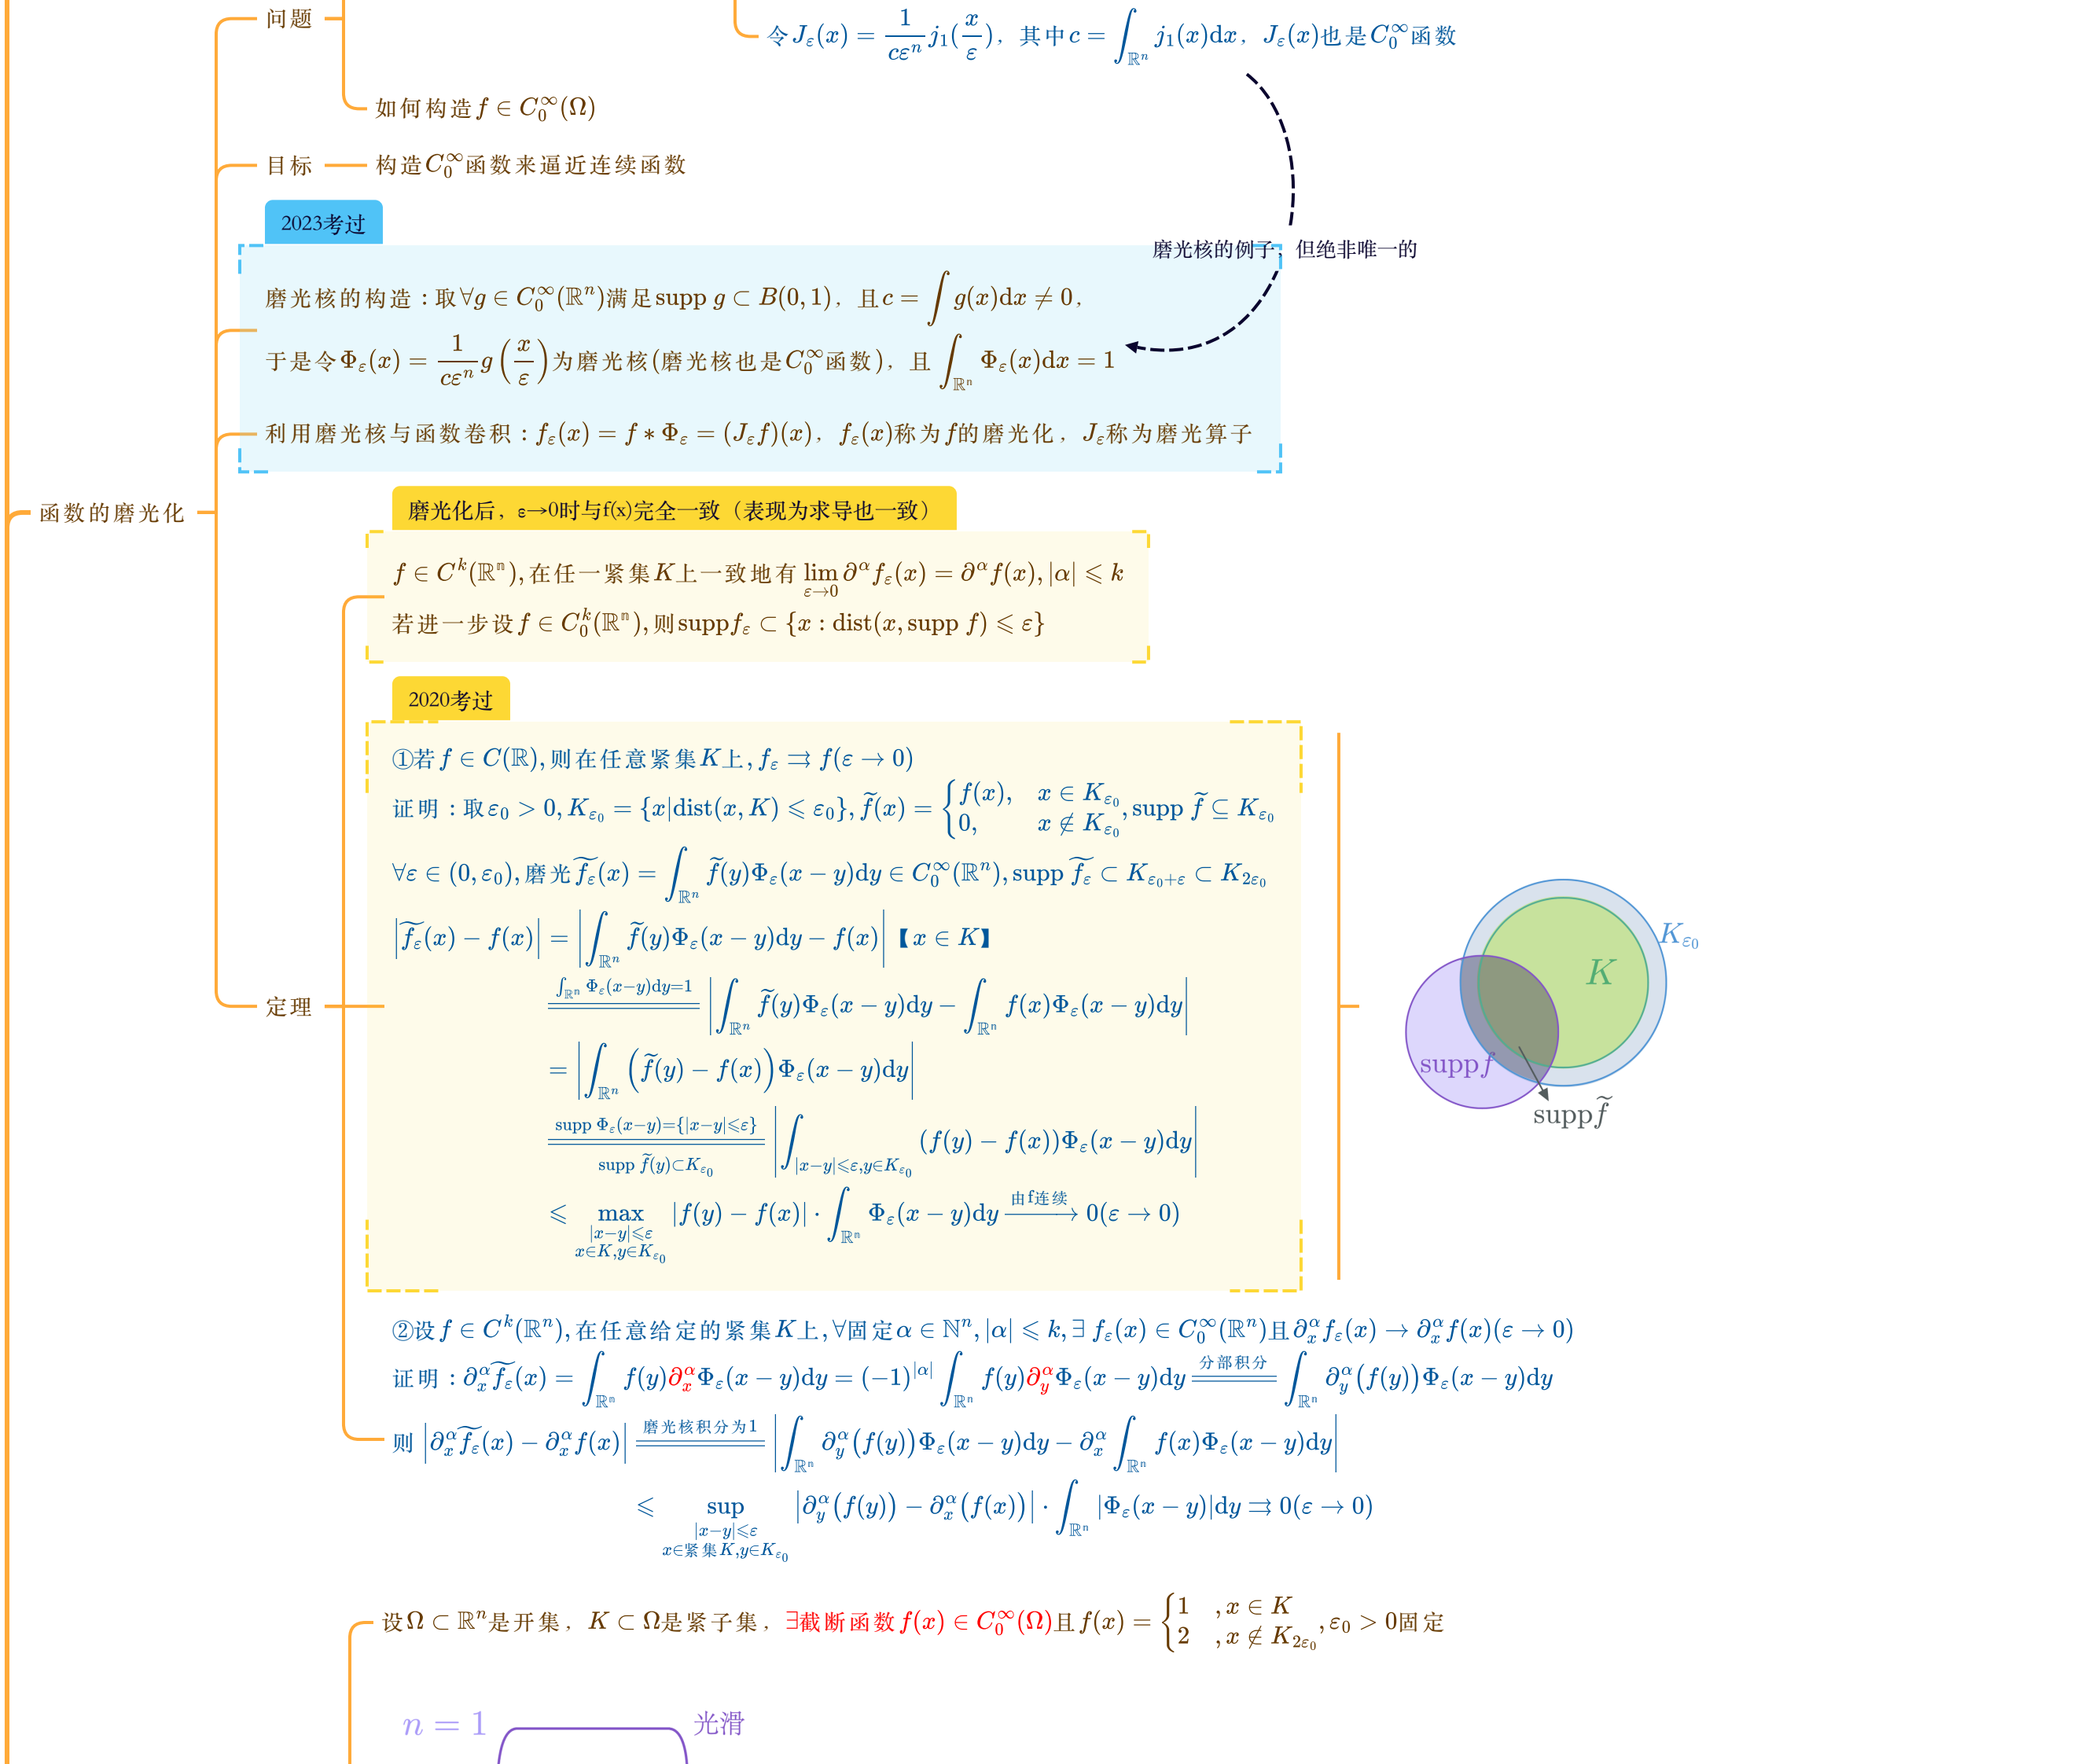 问题
令J_ε(x) = \frac{1}{cε^n} j_1(\frac{x}{ε}), 其中c = ∫_{ℝ^n} j_1(x)dx, J_ε(x)也是C_0^∞函数
如何构造f ∈ C_0^∞(Ω)
目标
构造C_0^∞函数来逼近连续函数
2023考过
磨光核的例子，但绝非唯一的
磨光核的构造：取∀g ∈ C_0^∞(ℝ^n)满足supp g ⊂ B(0,1), 且c = ∫ g(x)dx ≠ 0,
于是令Φ_ε(x) = \frac{1}{cε^n} g(\frac{x}{ε})为磨光核(磨光核也是C_0^∞函数), 且∫_{ℝ^n} Φ_ε(x)dx = 1
利用磨光核与函数卷积：f_ε(x) = f ∗ Φ_ε = (J_ε f)(x), f_ε(x)称为f的磨光化, J_ε称为磨光算子
函数的磨光化
磨光化后，ε→0时与f(x)完全一致（表现为求导也一致）
f ∈ C^k(ℝ^n), 在任一紧集K上一致地有 \lim_{ε→0} ∂^α f_ε(x) = ∂^α f(x), |α| ⩽ k
若进一步设f ∈ C_0^k(ℝ^n), 则supp f_ε ⊂ {x : dist(x, supp f) ⩽ ε}
2020考过
①若f ∈ C(ℝ), 则在任意紧集K上, f_ε ⇉ f(ε → 0)
证明：取ε_0 > 0, K_{ε_0} = {x|dist(x, K) ⩽ ε_0}, \widetilde{f}(x) = \begin{cases} f(x), & x ∈ K_{ε_0} \\ 0, & x ∉ K_{ε_0} \end{cases}, supp \widetilde{f} ⊆ K_{ε_0}
∀ε ∈ (0, ε_0), 磨光\widetilde{f_ε}(x) = ∫_{ℝ^n} \widetilde{f}(y)Φ_ε(x − y)dy ∈ C_0^∞(ℝ^n), supp \widetilde{f_ε} ⊂ K_{ε_0+ε} ⊂ K_{2ε_0}
|\widetilde{f_ε}(x) − f(x)| = |∫_{ℝ^n} \widetilde{f}(y)Φ_ε(x − y)dy − f(x)|【x ∈ K】
\xlongequal{∫_{ℝ^n} Φ_ε(x−y)dy=1} |∫_{ℝ^n} \widetilde{f}(y)Φ_ε(x − y)dy − ∫_{ℝ^n} f(x)Φ_ε(x − y)dy|
= |∫_{ℝ^n} (\widetilde{f}(y) − f(x))Φ_ε(x − y)dy|
\xlongequal[supp \widetilde{f}(y)⊂K_{ε_0}]{supp Φ_ε(x−y)={|x−y|⩽ε}} |∫_{|x−y|⩽ε,y∈K_{ε_0}} (f(y) − f(x))Φ_ε(x − y)dy|
⩽ \max_{|x−y|⩽ε, x∈K,y∈K_{ε_0}} |f(y) − f(x)| · ∫_{ℝ^n} Φ_ε(x − y)dy \xrightarrow{由f连续} 0(ε → 0)
K_{ε_0}
K
supp f
supp \widetilde{f}
定理
②设f ∈ C^k(ℝ^n), 在任意给定的紧集K上, ∀固定α ∈ ℕ^n, |α| ⩽ k, ∃ f_ε(x) ∈ C_0^∞(ℝ^n)且∂_x^α f_ε(x) → ∂_x^α f(x)(ε → 0)
证明：∂_x^α \widetilde{f_ε}(x) = ∫_{ℝ^n} f(y)∂_x^α Φ_ε(x − y)dy = (−1)^{|α|} ∫_{ℝ^n} f(y)∂_y^α Φ_ε(x − y)dy \xlongequal{分部积分} ∫_{ℝ^n} ∂_y^α(f(y))Φ_ε(x − y)dy
则 |∂_x^α \widetilde{f_ε}(x) − ∂_x^α f(x)| \xlongequal{磨光核积分为1} |∫_{ℝ^n} ∂_y^α(f(y))Φ_ε(x − y)dy − ∂_x^α ∫_{ℝ^n} f(x)Φ_ε(x − y)dy|
⩽ \sup_{|x−y|⩽ε, x∈紧集K,y∈K_{ε_0}} |∂_y^α(f(y)) − ∂_x^α(f(x))| · ∫_{ℝ^n} |Φ_ε(x − y)|dy ⇉ 0(ε → 0)
设Ω ⊂ ℝ^n是开集, K ⊂ Ω是紧子集, ∃截断函数f(x) ∈ C_0^∞(Ω)且f(x) = \begin{cases} 1 & , x ∈ K \\ 2 & , x ∉ K_{2ε_0} \end{cases}, ε_0 > 0固定
n = 1
光滑